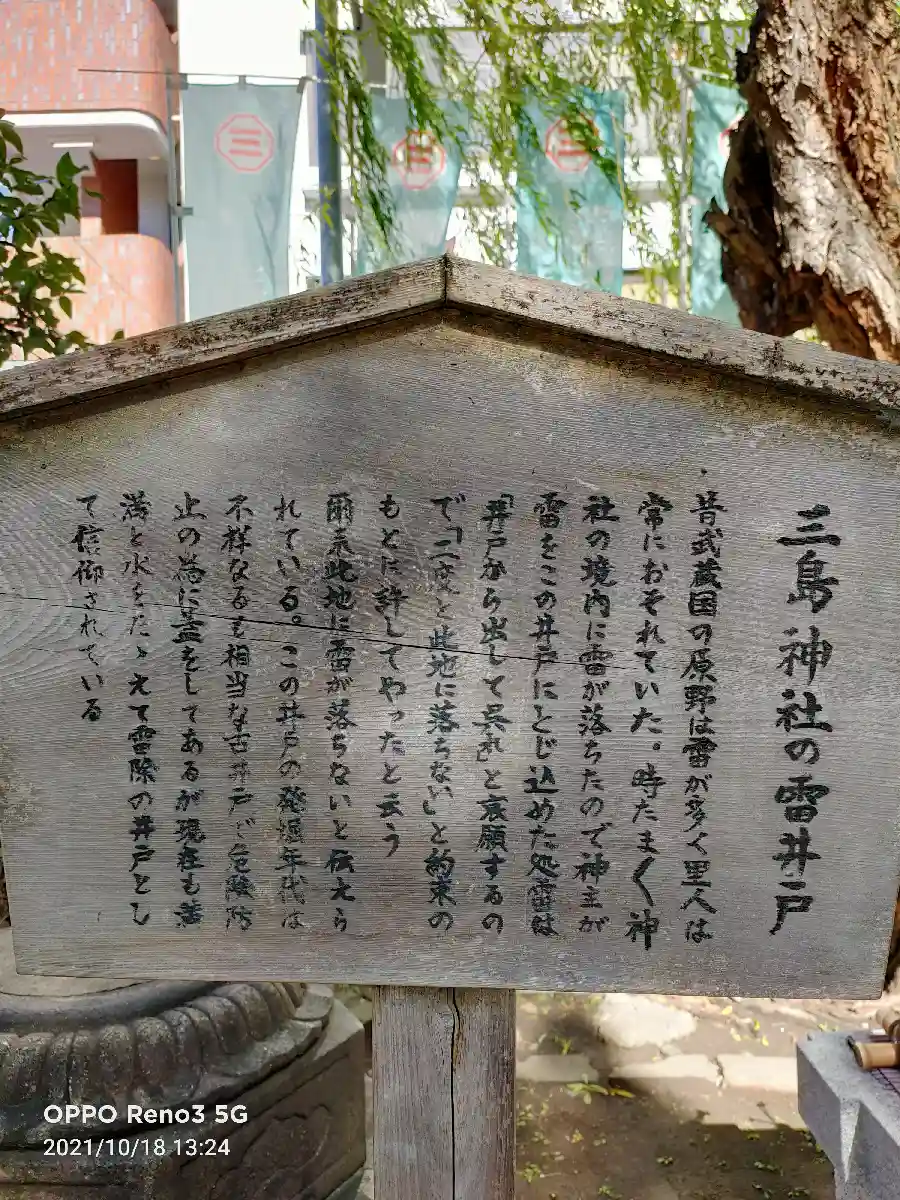 三島神社の雷井戸
昔武蔵国の原野は雷が多く里人は
常におそれていた。時たま〱神
社の境内に雷が落ちたので神主が
雷をこの井戸にとじ込めた処雷は
「井戸から出して呉れ」と哀願するの
で「二度と此地に落ちない」と約束の
もとに許してやったと云う
爾来此地に雷が落ちないと伝えら
れている。この井戸の発掘年代は
不詳なるも相当な古井戸で危険防
止の為に蓋をしてあるが現在も満
満と水をたゝえて雷除の井戸とし
て信仰されている
三
三
三
OPPO Reno3 5G
2021/10/18 13:24